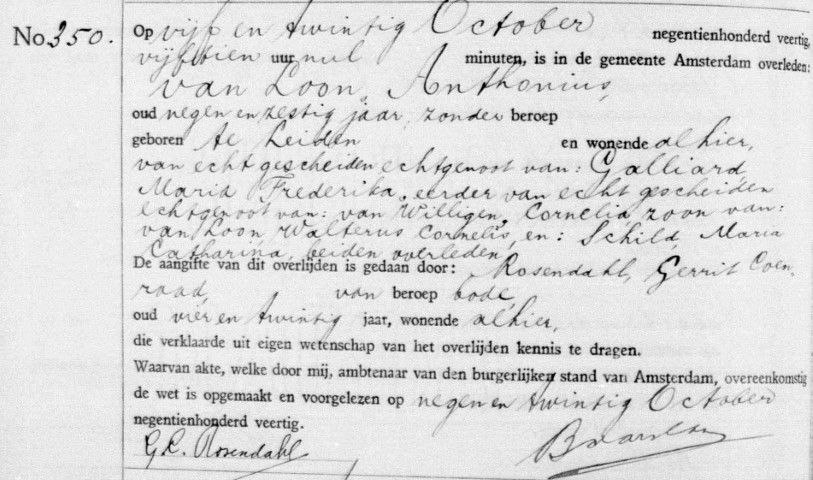 No. 350. Op vijf en twintig October negentienhonderd veertig,
vijftien uur nul minuten, is in de gemeente Amsterdam overleden:
van Loon, Anthonius,
oud negen en zestig jaar, zonder beroep
geboren te Leiden en wonende alhier,
van echt gescheiden echtgenoot van: Galliard,
Maria Frederika, eerder van echt gescheiden
echtgenoot van: van Willigen, Cornelia, zoon van:
van Loon, Walterus Cornelis, en: Schild, Maria
Catharina, beiden overleden.
De aangifte van dit overlijden is gedaan door: Rosendahl, Gerrit Coen-
raad, van beroep bode,
oud vier en twintig jaar, wonende alhier,
die verklaarde uit eigen wetenschap van het overlijden kennis te dragen.
Waarvan akte, welke door mij, ambtenaar van den burgerlijken stand van Amsterdam, overeenkomstig
de wet is opgemaakt en voorgelezen op negen en twintig October
negentienhonderd veertig.
G.C. Rosendahl